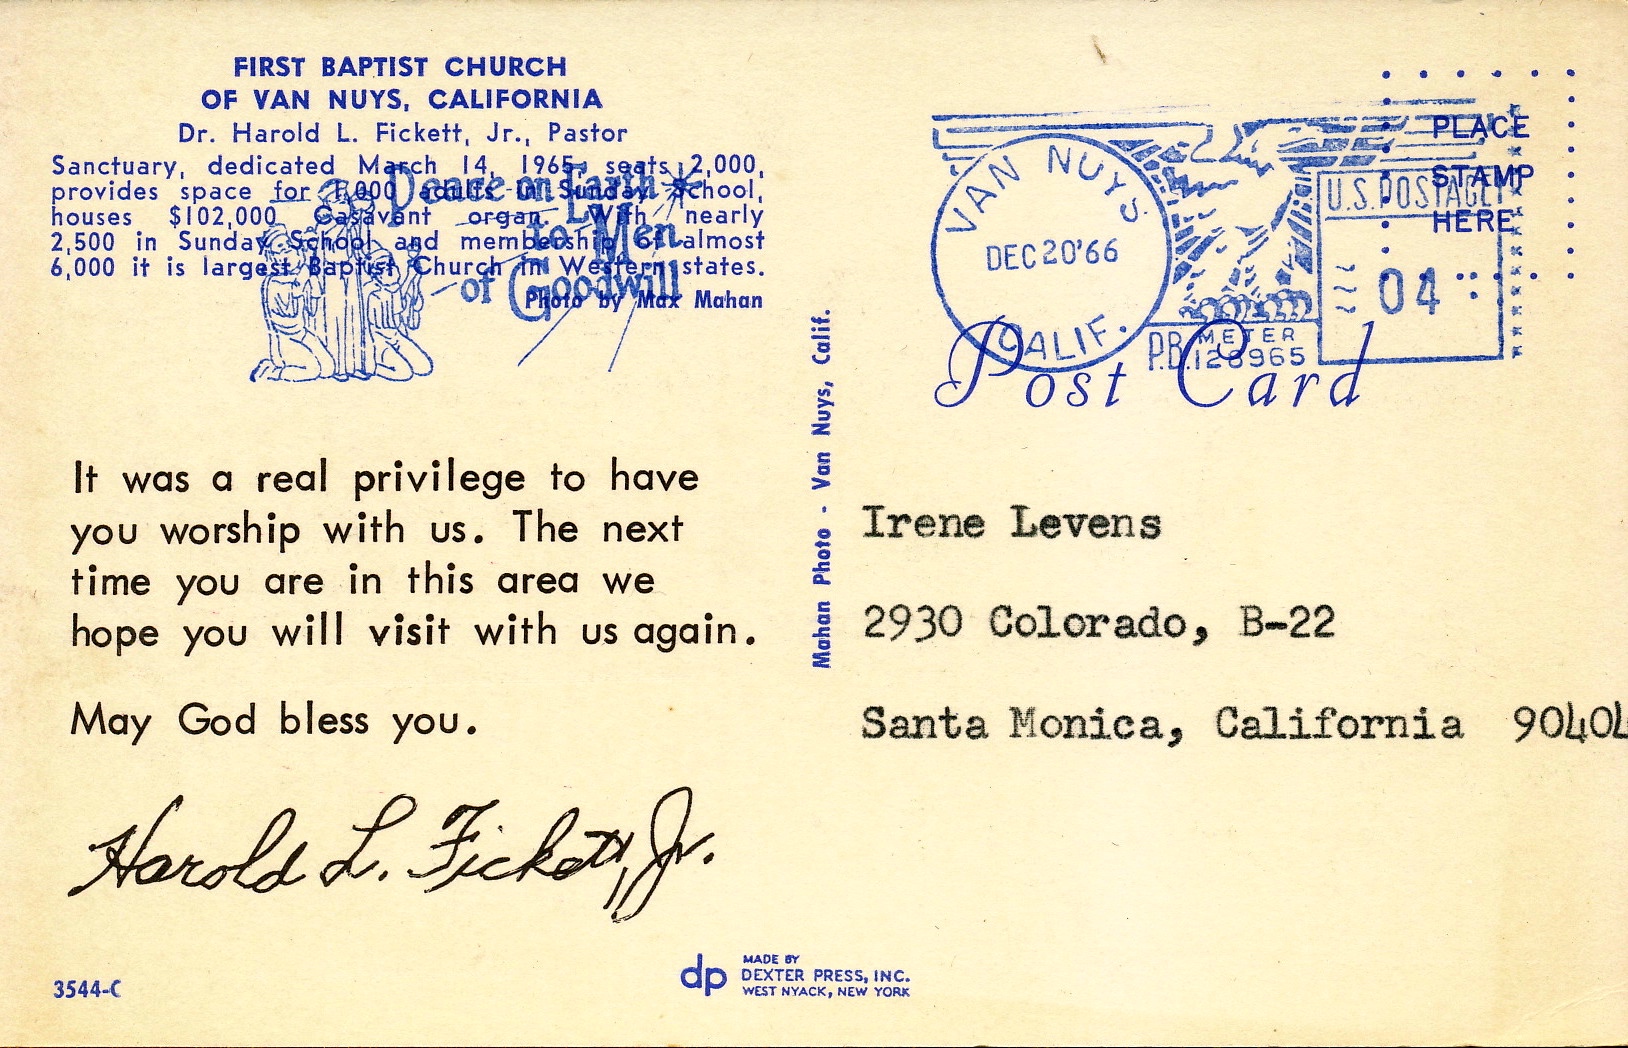 FIRST BAPTIST CHURCH
OF VAN NUYS, CALIFORNIA
Dr. Harold L. Fickett, Jr., Pastor
Sanctuary, dedicated March 14, 1965, seats 2,000,
provides space for 1,000 adults in Sunday School,
houses $102,000 Casavant organ. With nearly
2,500 in Sunday School and membership of almost
6,000 it is largest Baptist Church in Western states.
Photo by Max Mahan
Peace on Earth
to Men
of Goodwill
It was a real privilege to have
you worship with us. The next
time you are in this area we
hope you will visit with us again.
May God bless you.
Harold L. Fickett, Jr.
3544-C
Mahan Photo - Van Nuys, Calif.
dp
MADE BY
DEXTER PRESS, INC.
WEST NYACK, NEW YORK
VAN NUYS
DEC 20 '66
CALIF.
P.B. METER
128965
U.S. POSTAGE
04
PLACE
STAMP
HERE
Post Card
Irene Levens
2930 Colorado, B-22
Santa Monica, California 90404